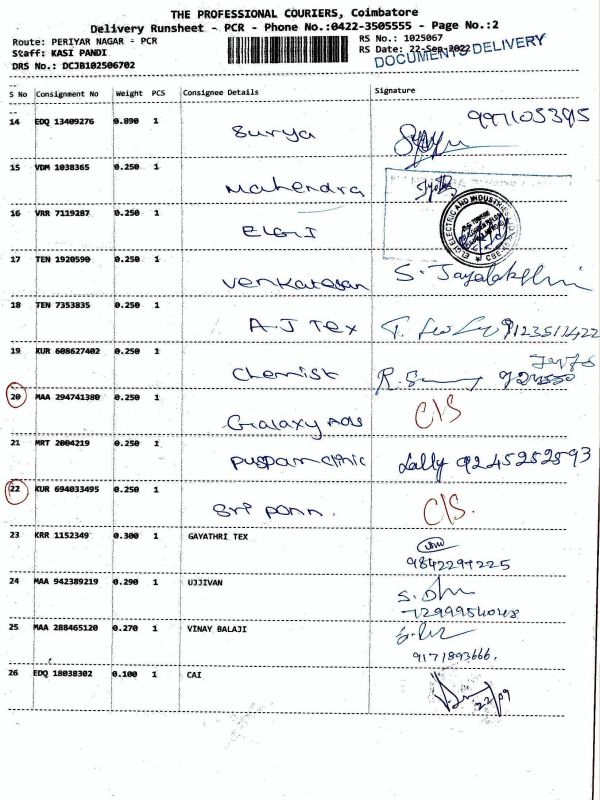 THE PROFESSIONAL COURIERS, Coimbatore
Delivery Runsheet - PCR - Phone No.:0422-3505555 - Page No.:2
Route: PERIYAR NAGAR - PCR RS No.: 1025067
Staff: KASI PANDI RS Date: 22-Sep-2022
DOCUMENTS DELIVERY
DRS No.: DCJB102506702
S No Consignment No Weight PCS Consignee Details Signature
14 EDQ 13409276 0.890 1 Surya
15 VDM 1038365 0.250 1 Mahendra
16 VRR 7119287 0.250 1 ELGI
17 TEN 1920590 0.250 1 Venkatesan S. Jayalakshmi
18 TEN 7353835 0.250 1 A.J Tex 9123511422
19 KUR 608627402 0.250 1 Chemist
20 MAA 294741380 0.250 1 Galaxy Ads C/S
21 MRT 2004219 0.250 1 Puspam clinic Lally 9245252593
22 KUR 694033495 0.250 1 Sri Ponn. C/S.
23 KRR 1152349 0.300 1 GAYATHRI TEX
24 MAA 942389219 0.290 1 UJJIVAN
25 MAA 288465120 0.270 1 VINAY BALAJI 9171893666.
26 EDQ 18038302 0.100 1 CAI 22/09